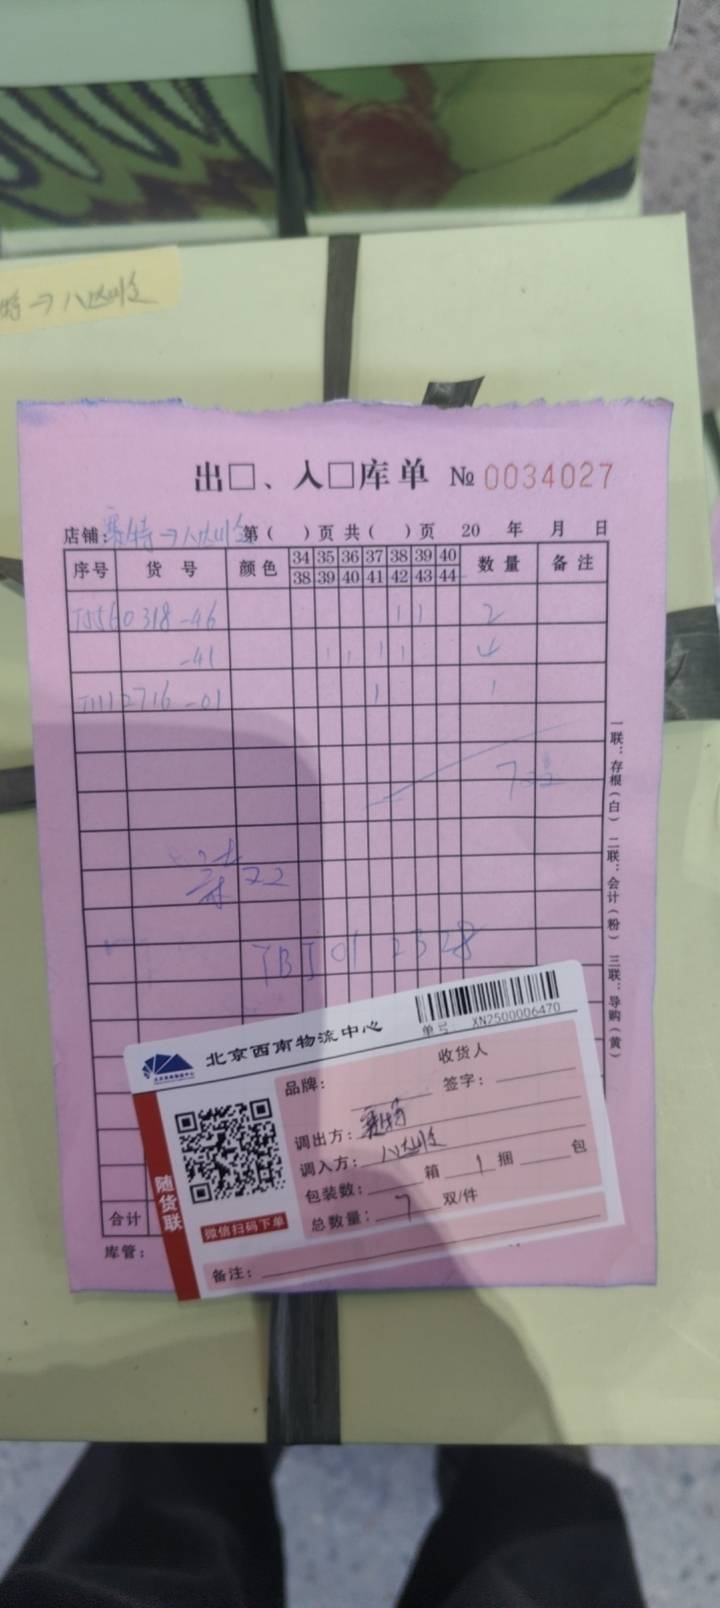 出□、入□库单 № 0034027
店铺: 赛特→八达岭 第( )页 共( )页 20 年 月 日
序号 货号 颜色 34 35 36 37 38 39 40 数量 备注
38 39 40 41 42 43 44
TJ560318-46 1 1 2
-41 1 1 1 1 4
T1112716-01 1 1
7双
22
TBJ01 2328
一联:存根(白) 二联:会计(粉) 三联:导购(黄)
合计
库管:
北京西南物流中心
单号: XN2500006470
品牌:
收货人
签字:
调出方: 赛特
调入方: 八达岭
包装数: 箱 1 捆 包
总数量: 7 双/件
随货联
微信扫码下单
备注: